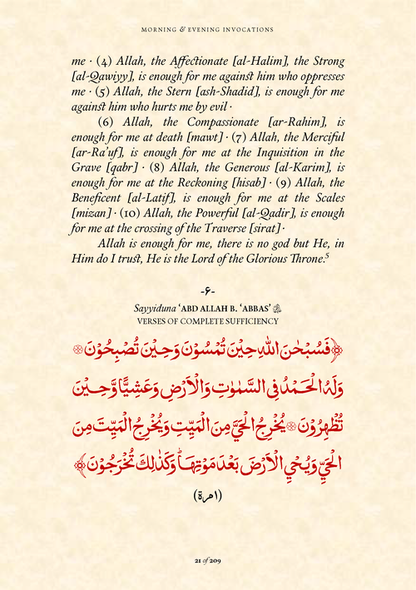 MORNING & EVENING INVOCATIONS
me · (4) Allah, the Affectionate [al-Halim], the Strong
[al-Qawiyy], is enough for me against him who oppresses
me · (5) Allah, the Stern [ash-Shadid], is enough for me
against him who hurts me by evil ·
(6) Allah, the Compassionate [ar-Rahim], is
enough for me at death [mawt] · (7) Allah, the Merciful
[ar-Ra'uf], is enough for me at the Inquisition in the
Grave [qabr] · (8) Allah, the Generous [al-Karim], is
enough for me at the Reckoning [hisab] · (9) Allah, the
Beneficent [al-Latif], is enough for me at the Scales
[mizan] · (10) Allah, the Powerful [al-Qadir], is enough
for me at the crossing of the Traverse [sirat] ·
Allah is enough for me, there is no god but He, in
Him do I trust, He is the Lord of the Glorious Throne.⁵
-۶-
Sayyiduna ‘ABD ALLAH B. ‘ABBAS’
VERSES OF COMPLETE SUFFICIENCY
﴿فَسُبْحٰنَ اللهِ حِيْنَ تُمْسُوْنَ وَحِيْنَ تُصْبِحُوْنَ ۞
وَلَهُ الْحَمْدُ فِى السَّمٰوٰتِ وَالْاَرْضِ وَعَشِيًّا وَّحِيْنَ
تُظْهِرُوْنَ ۞ يُخْرِجُ الْحَيَّ مِنَ الْمَيِّتِ وَيُخْرِجُ الْمَيِّتَ مِنَ
الْحَيِّ وَيُحْيِ الْاَرْضَ بَعْدَ مَوْتِهَا ؕ وَكَذٰلِكَ تُخْرَجُوْنَ﴾
(١مرة)
21 of 209